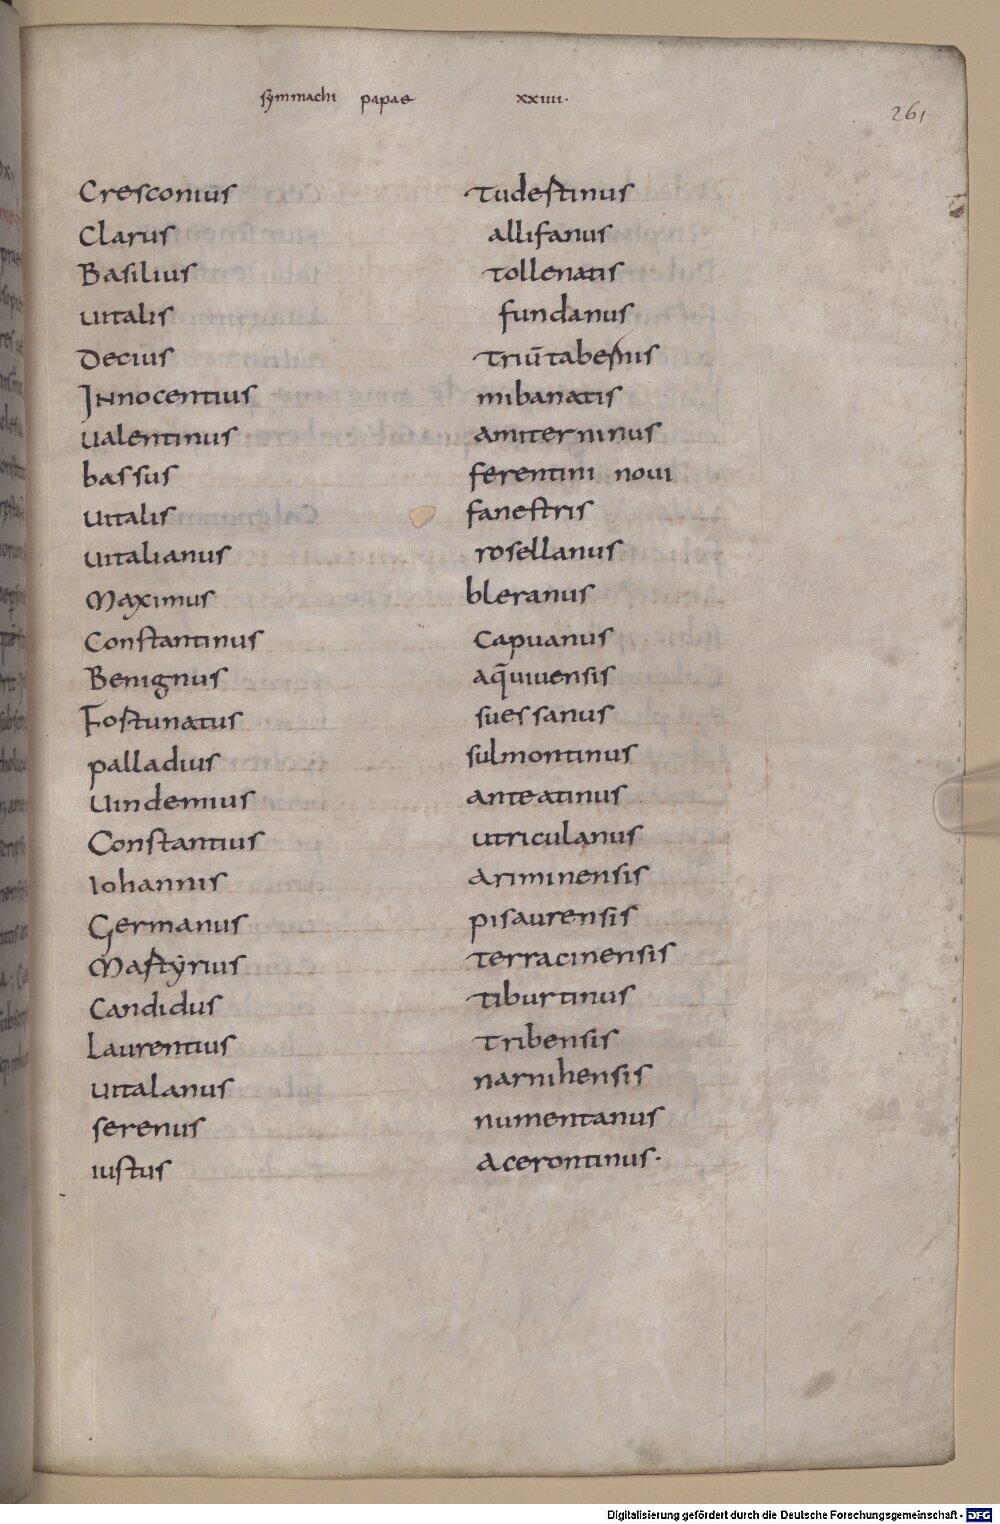 symmachi papae xxiiii·
261
Cresconius tudestinus
Clarus allifanus
Basilius tollenatis
uitalis fundanus
Decius triūtabernis
Innocentius mibanatis
ualentinus amiterninus
bassus ferentini noui
uitalis fanestris
uitalianus rosellanus
Maximus bleranus
Constantinus Capuanus
Benignus aq̄uiuensis
Fortunatus suessanus
palladius sulmontinus
Uindemius anteatinus
Constantius utriculanus
Iohannis ariminensis
Germanus pisaurensis
Martyrius terracinensis
Candidus tiburtinus
Laurentius tribensis
uitalanus narnihensis
serenus numentanus
iustus acerontinus·
Digitalisierung gefördert durch die Deutsche Forschungsgemeinschaft - DFG